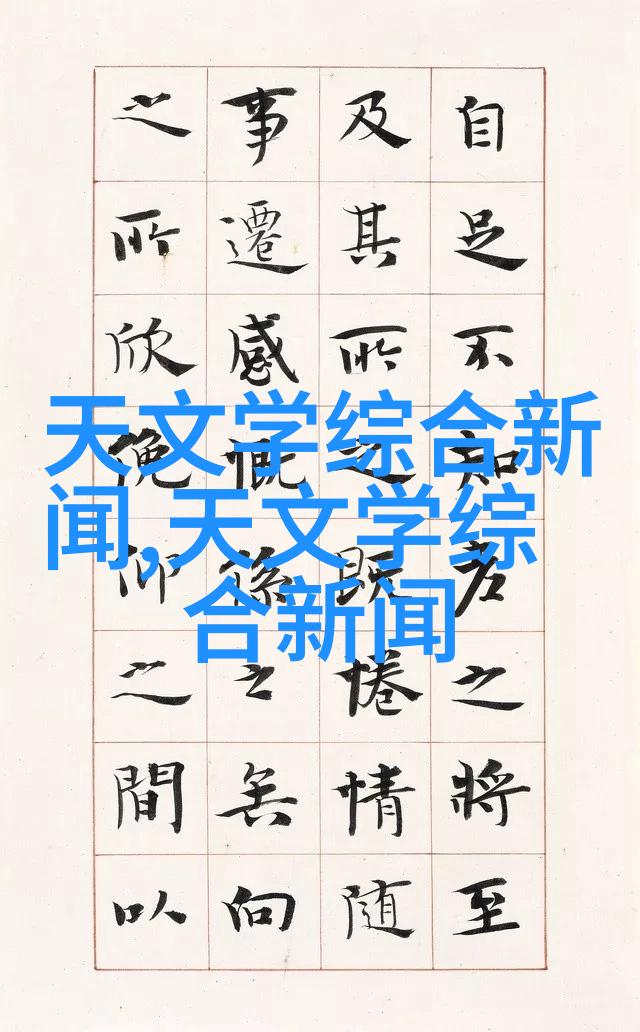 自足不知老之將至
及其所之既惓情隨
事遷感慨係之矣向
之所欣俛仰之間以
天文学综合新
闻,天文学综
合新闻